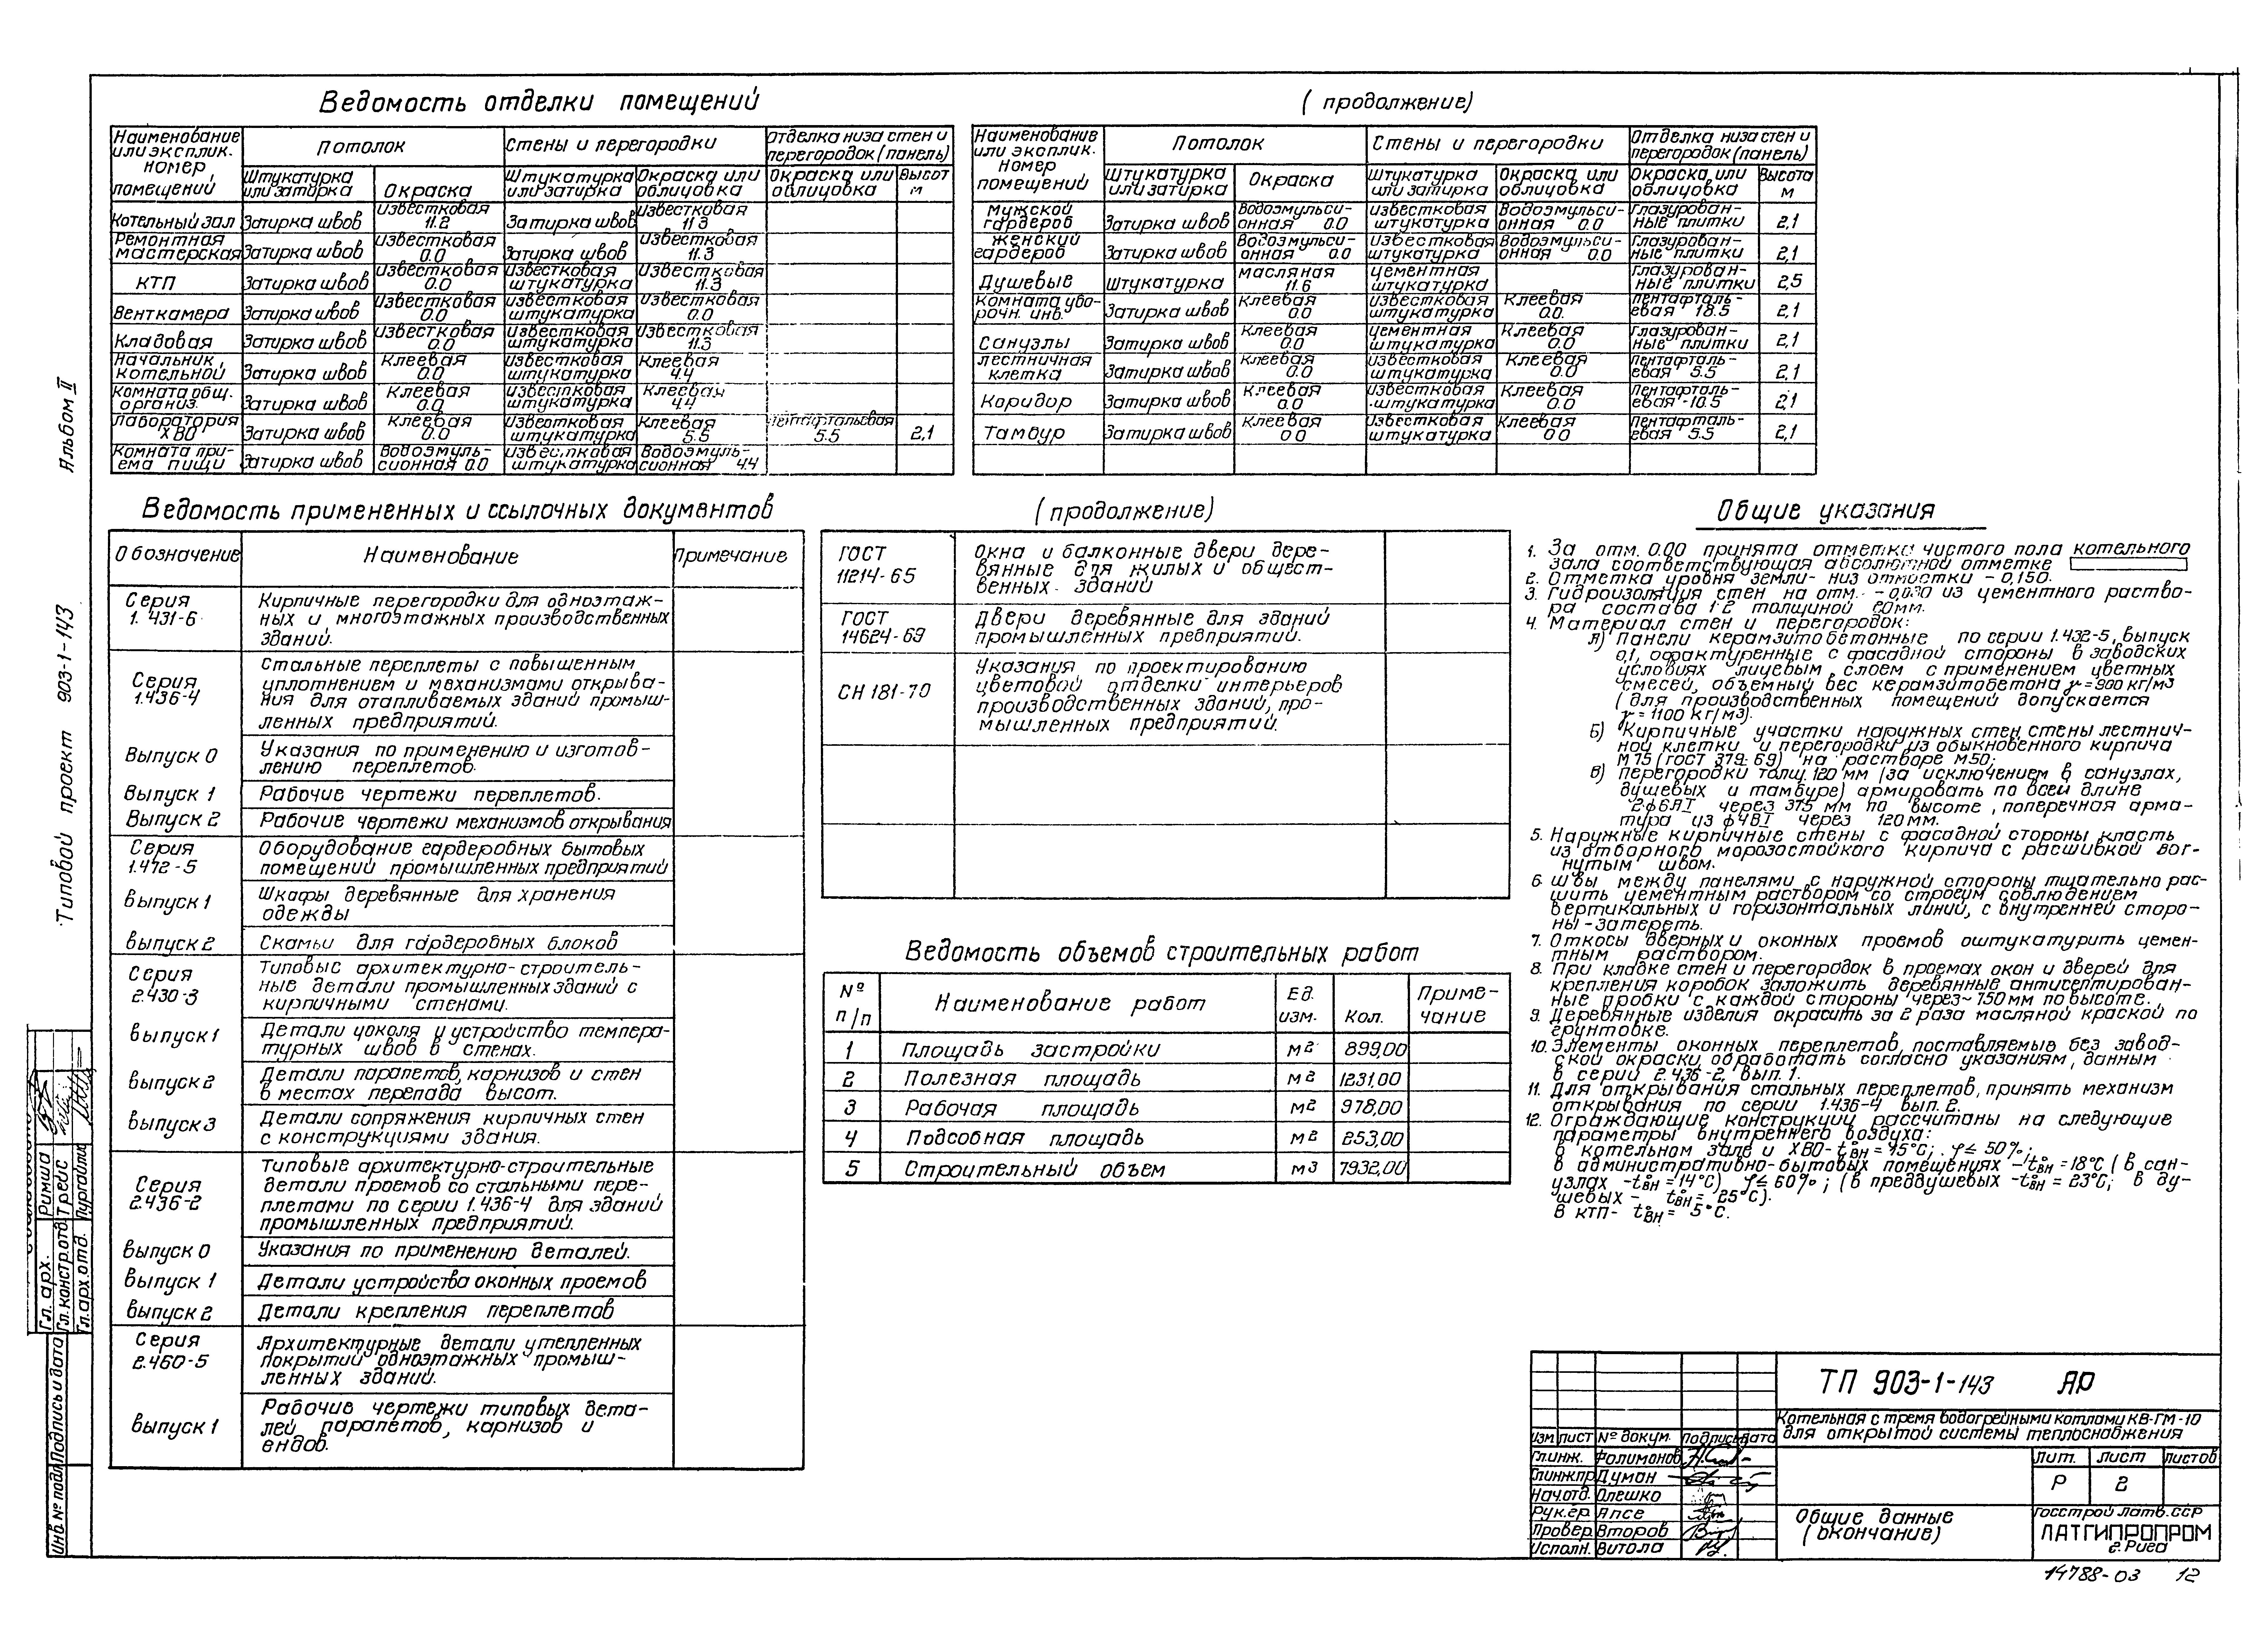 Ведомость отделки помещений
Наименование или эксплик. номер помещений | Потолок | Стены и перегородки | Отделка низа стен и перегородок (панель)
Штукатурка или затирка | Окраска | Штукатурка или затирка | Окраска или облицовка | Окраска или облицовка | Высот м
Котельный зал | Затирка швов | Известковая 11.2 | Затирка швов | Известковая 11.3
Ремонтная мастерская | Затирка швов | Известковая 0.0 | Затирка швов | Известковая 11.3
КТП | Затирка швов | Известковая 0.0 | Известковая штукатурка | Известковая 11.3
Венткамера | Затирка швов | Известковая 0.0 | Известковая штукатурка | Известковая 0.0
Кладовая | Затирка швов | Известковая 0.0 | Известковая штукатурка | Известковая 11.3
Начальник котельной | Затирка швов | Клеевая 0.0 | Известковая штукатурка | Клеевая 4.4
Комната общ. организ. | Затирка швов | Клеевая 0.0 | Известковая штукатурка | Клеевая 4.4
Лаборатория ХВО | Затирка швов | Клеевая 0.0 | Известковая штукатурка | Клеевая 5.5 | Пентафталевая 5.5 | 2,1
Комната приема пищи | Затирка швов | Водоэмульсионная 0.0 | Известковая штукатурка | Водоэмульсионная 4.4
(продолжение)
Наименование или эксплик. номер помещений | Потолок | Стены и перегородки | Отделка низа стен и перегородок (панель)
Штукатурка или затирка | Окраска | Штукатурка или затирка | Окраска или облицовка | Окраска или облицовка | Высота м
Мужской гардероб | Затирка швов | Водоэмульсионная 0.0 | Известковая штукатурка | Водоэмульсионная 0.0 | Глазурованные плитки | 2,1
Женский гардероб | Затирка швов | Водоэмульсионная 0.0 | Известковая штукатурка | Водоэмульсионная 0.0 | Глазурованные плитки | 2,1
Душевые | Штукатурка | масляная 11.6 | цементная штукатурка | | Глазурованные плитки | 2,5
Комната уборочн. инв. | Затирка швов | Клеевая 0.0 | Известковая штукатурка | Клеевая 0.0. | Пентафталь-евая 18.5 | 2,1
Санузлы | Затирка швов | Клеевая 0.0 | цементная штукатурка | Клеевая 0.0 | Глазурованные плитки | 2,1
Лестничная клетка | Затирка швов | Клеевая 0.0 | Известковая штукатурка | Клеевая 0.0 | Пентафталь-евая 5.5 | 2,1
Коридор | Затирка швов | Клеевая 0.0 | Известковая штукатурка | Клеевая 0.0 | Пентафталь-евая 10.5 | 2,1
Тамбур | Затирка швов | Клеевая 0 0 | Известковая штукатурка | Клеевая 0 0 | Пентафталь-евая 5.5 | 2,1
Ведомость примененных и ссылочных документов
Обозначение | Наименование | Примечание
Серия 1.431-6 | Кирпичные перегородки для одноэтаж-
ных и многоэтажных производственных
зданий.
Серия 1.436-4 | Стальные переплеты с повышенным
уплотнением и механизмами открыва-
ния для отапливаемых зданий промыш-
ленных предприятий.
Выпуск 0 | Указания по применению и изготов-
лению переплетов.
Выпуск 1 | Рабочие чертежи переплетов.
Выпуск 2 | Рабочие чертежи механизмов открывания
Серия 1.472-5 | Оборудование гардеробных бытовых
помещений промышленных предприятий
выпуск 1 | Шкафы деревянные для хранения
одежды
выпуск 2 | Скамьи для гардеробных блоков
Серия 2.430-3 | Типовые архитектурно-строитель-
ные детали промышленных зданий с
кирпичными стенами.
выпуск 1 | Детали цоколя и устройство темпера-
турных швов в стенах.
выпуск 2 | Детали парапетов, карнизов и стен
в местах перепада высот.
выпуск 3 | Детали сопряжения кирпичных стен
с конструкциями здания.
Серия 2.436-2 | Типовые архитектурно-строительные
детали проемов со стальными пере-
плетами по серии 1.436-4 для зданий
промышленных предприятий.
выпуск 0 | Указания по применению деталей.
выпуск 1 | Детали устройства оконных проемов
выпуск 2 | Детали крепления переплетов
Серия 2.460-5 | Архитектурные детали утепленных
покрытий одноэтажных промыш-
ленных зданий.
выпуск 1 | Рабочие чертежи типовых дета-
лей парапетов, карнизов и
ендов.
(продолжение)
ГОСТ 11214-65 | Окна и балконные двери дере-
вянные для жилых и общест-
венных зданий
ГОСТ 14624-69 | Двери деревянные для зданий
промышленных предприятий.
СН 181-70 | Указания по проектированию
цветовой отделки интерьеров
производственных зданий, про-
мышленных предприятий.
Ведомость объемов строительных работ
№ п/п | Наименование работ | Ед. изм. | Кол. | Примечание
1 | Площадь застройки | м2 | 899,00
2 | Полезная площадь | м2 | 1231,00
3 | Рабочая площадь | м2 | 978,00
4 | Подсобная площадь | м2 | 253,00
5 | Строительный объем | м3 | 7932,00
Общие указания
1. За отм. 0.00 принята отметка чистого пола котельного
зала соответствующая абсолютной отметке
2. Отметка уровня земли- низ отмостки - 0,150.
3. Гидроизоляция стен на отм. - 0,030 из цементного раство-
ра состава 1:2 толщиной 20мм.
4. Материал стен и перегородок:
А) Панели керамзитобетонные по серии 1.432-5, выпуск
0,1, офактуренные с фасадной стороны в заводских
условиях лицевым слоем с применением цветных
смесей, объемный вес керамзитобетона γ=900 кг/м3
(для производственных помещений допускается
γ=1100 кг/м3).
Б) Кирпичные участки наружных стен, стены лестнич-
ной клетки и перегородки из обыкновенного кирпича
М75 (гост 379-69) на растворе М50;
в) перегородки толщ. 120 мм (за исключением в санузлах,
душевых и тамбуре) армировать по всей длине
2ф6АI через 375 мм по высоте, поперечная арма-
тура из ф4ВI через 120 мм.
5. Наружные кирпичные стены с фасадной стороны класть
из отборного морозостойкого кирпича с расшивкой вог-
нутым швом.
6. Швы между панелями с наружной стороны тщательно рас-
шить цементным раствором со строгим соблюдением
вертикальных и горизонтальных линий, с внутренней сторо-
ны - затереть.
7. Откосы дверных и оконных проемов оштукатурить цемен-
тным раствором.
8. При кладке стен и перегородок в проемах окон и дверей для
крепления коробок заложить деревянные антисептирован-
ные пробки с каждой стороны через ~ 750 мм по высоте.
9. Деревянные изделия окрасить за 2 раза масляной краской по
грунтовке.
10. Элементы оконных переплетов, поставляемые без завод-
ской окраски, обработать согласно указаниям, данным
в серии 2.436-2, вып. 1.
11. Для открывания стальных переплетов, принять механизм
открывания по серии 1.436-4 вып. 2.
12. Ограждающие конструкции рассчитаны на следующие
параметры внутреннего воздуха:
в котельном зале и ХВО- t°вн = 15°с; φ ≤ 50%;
в административно-бытовых помещениях - t°вн = 18°с (в сан-
узлах - t°вн = 14°с) φ ≤ 60%; (в преддушевых - t°вн = 23°с; в ду-
шевых - t°вн = 25°с).
В КТП- t°вн = 5°с.
Типовой проект 903-1-143 Альбом II
Гл. арх. Римша
Гл. констр. отд. Трейс
Гл. арх. отд. Пургайлис
Инв. № подл Подпись и дата
ТП 903-1-143 АР
Котельная с тремя водогрейными котлами КВ-ГМ-10
для открытой системы теплоснабжения
Изм лист № докум. Подпись дата
Гл.инж. Фолимонов
Глинжпр Думан
Нач.отд. Олешко
Рук.гр. Апсе
Провер Второв
Исполн. Витола
Лит. лист листов
Р 2
Общие данные
(окончание)
госстрой латв. ССР
ЛАТГИПРОПРОМ
г. Рига
14788-03 12